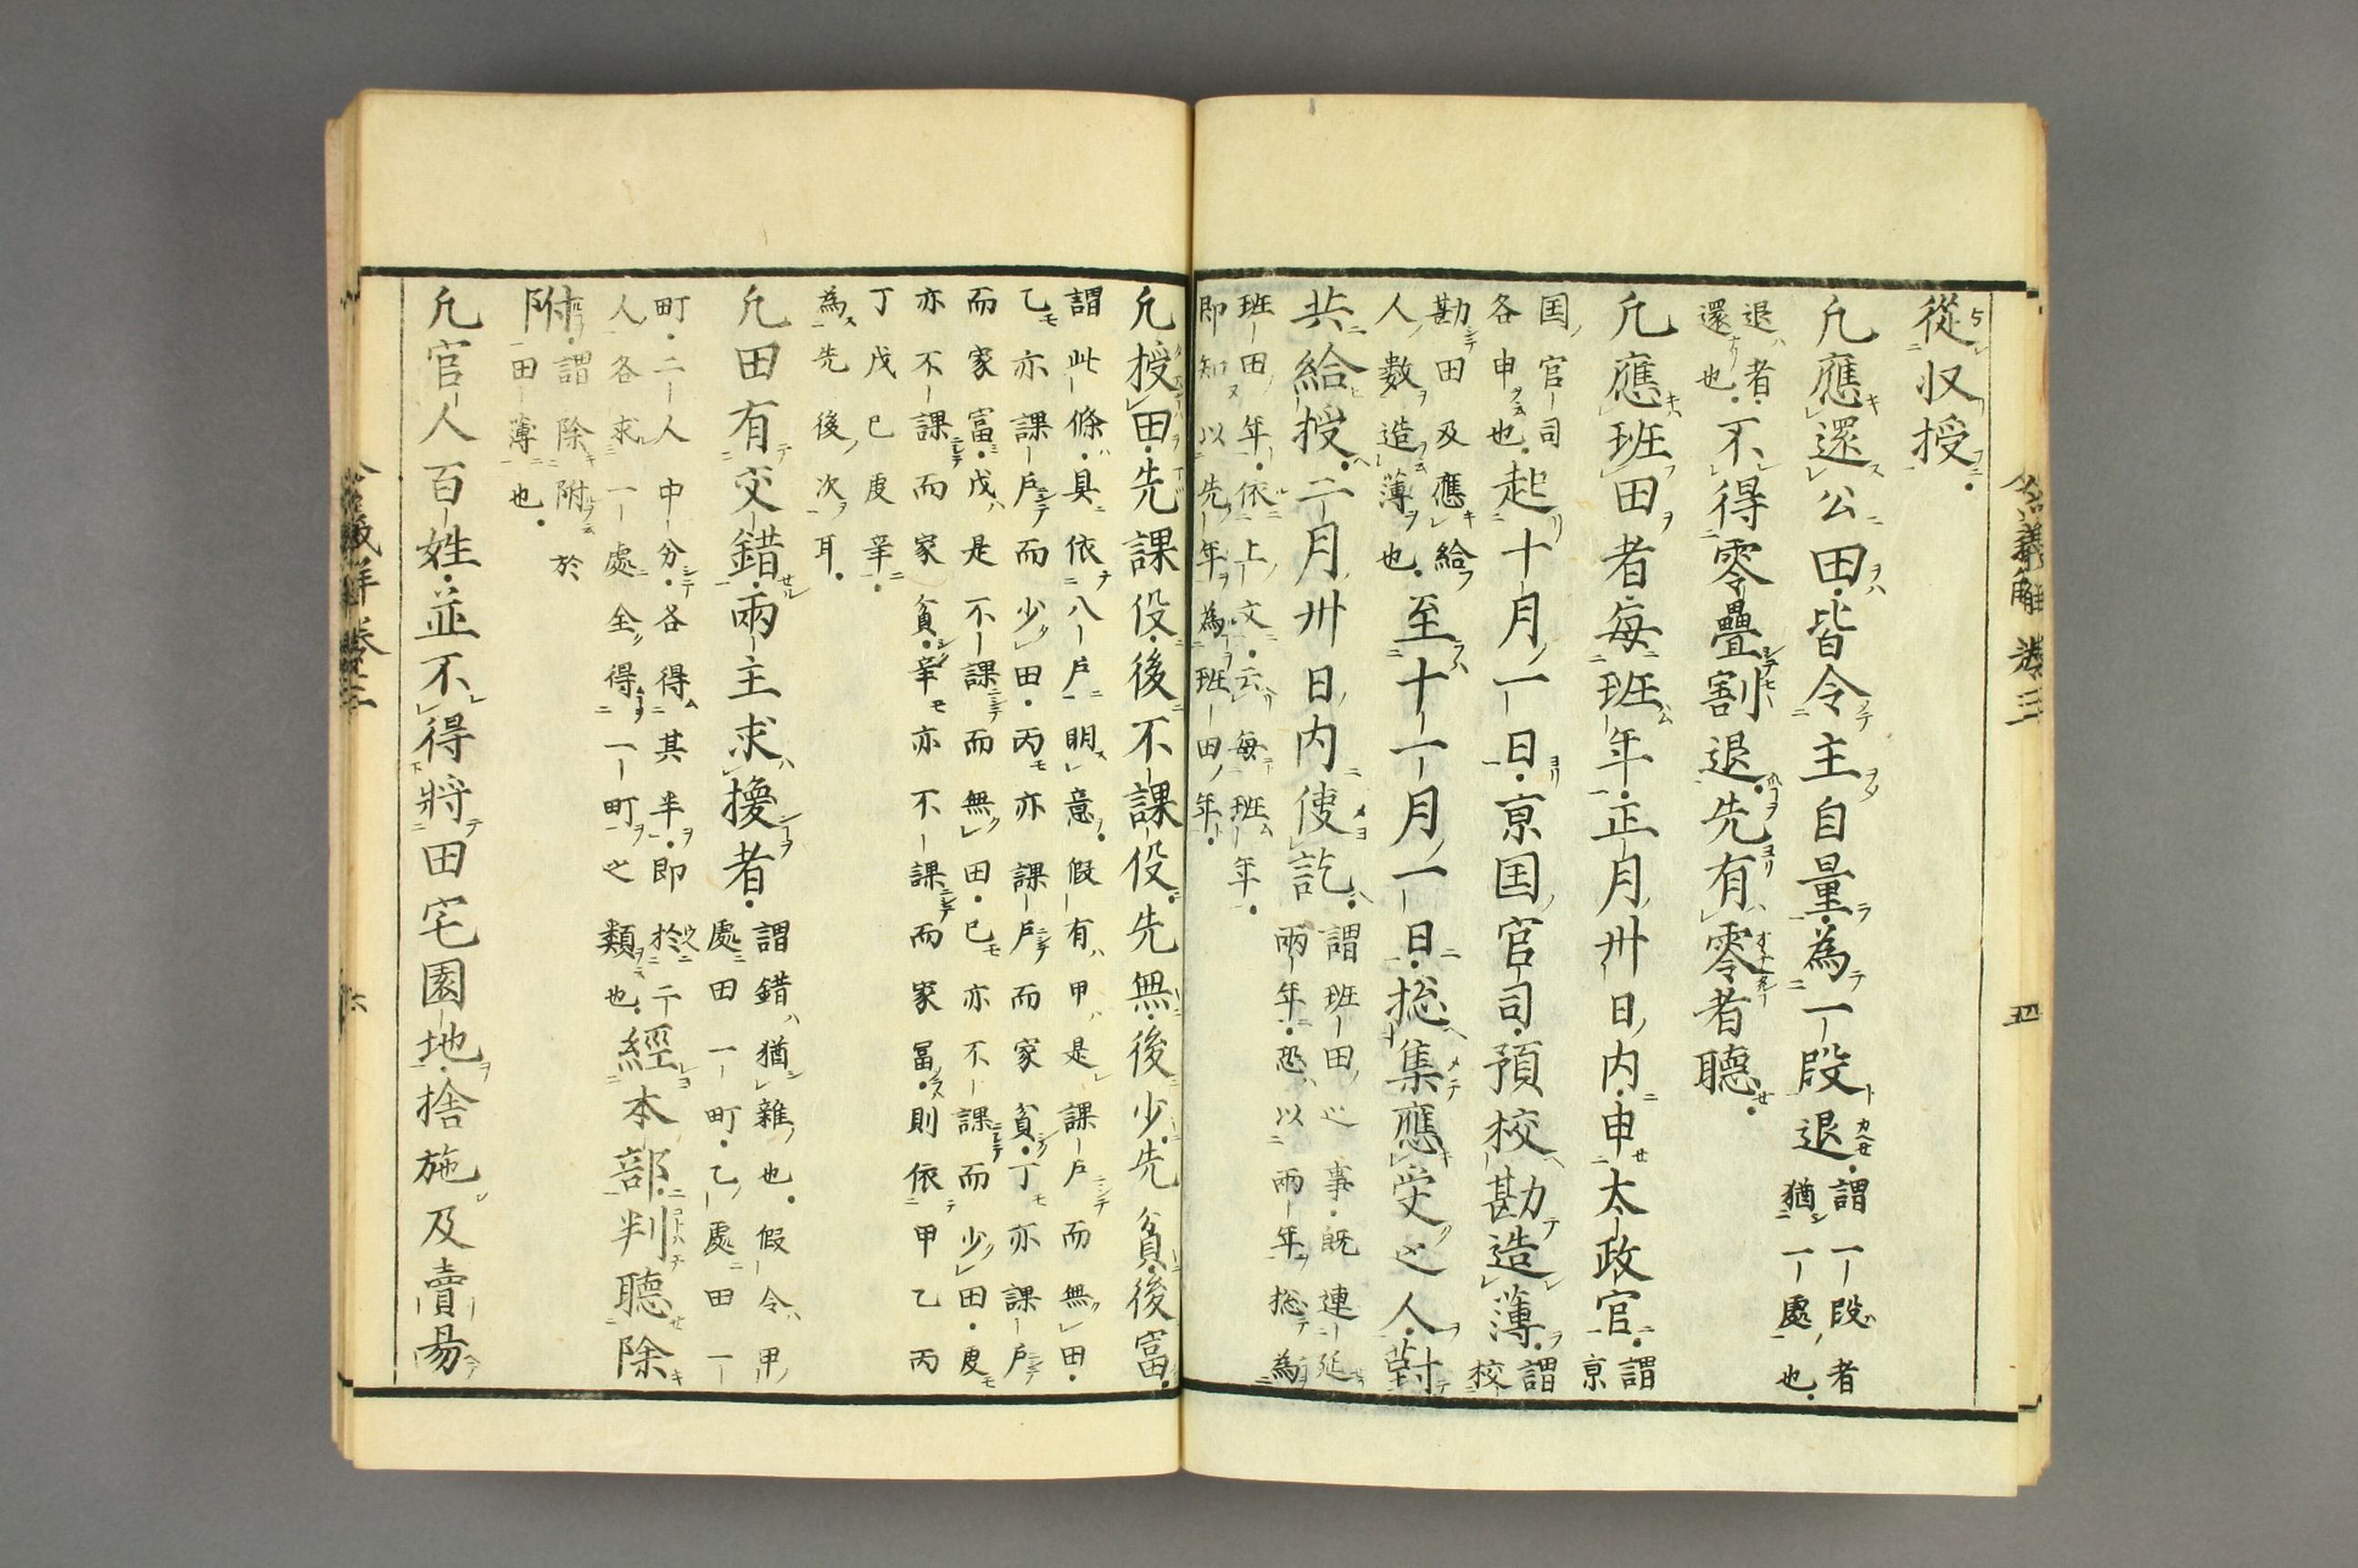 令義解 巻三 四
從収授
凢應還公田皆令主自量為一段退謂一段者
猶一處也
退者
還也不得零疊割退先有零者聽
凢應班田者毎班年正月卅日内申太政官謂
京
国官司
各申也起十月一日京国官司預校勘造薄謂
校
勘田及應給
人數造薄也至十一月一日捴集應受之人對
共給授二月卅日内使訖謂班田之事既連延
兩年恐以兩年捴為
班田年依上文云毎班年
即知以先年為班田年
凢授田先課役後不課役先無後少先貧後富
謂此條具依八戶明意假有甲是課戶而無田
乙亦課戶而少田丙亦課戶而家貧丁亦課戶
而家富戊是不課而無田己亦不課而少田庚
亦不課而家貧辛亦不課而家冨則依甲乙丙
丁戊己庚辛
為先後次耳
凢田有交錯兩主求換者謂錯猶雜也假令甲
處田一町乙處田一
町二人中分各得其半即於二
人各求一處全得一町之類也經本部判聽除
附謂除附於
田薄也
凢官人百姓並不得將田宅園地捨施及賣易